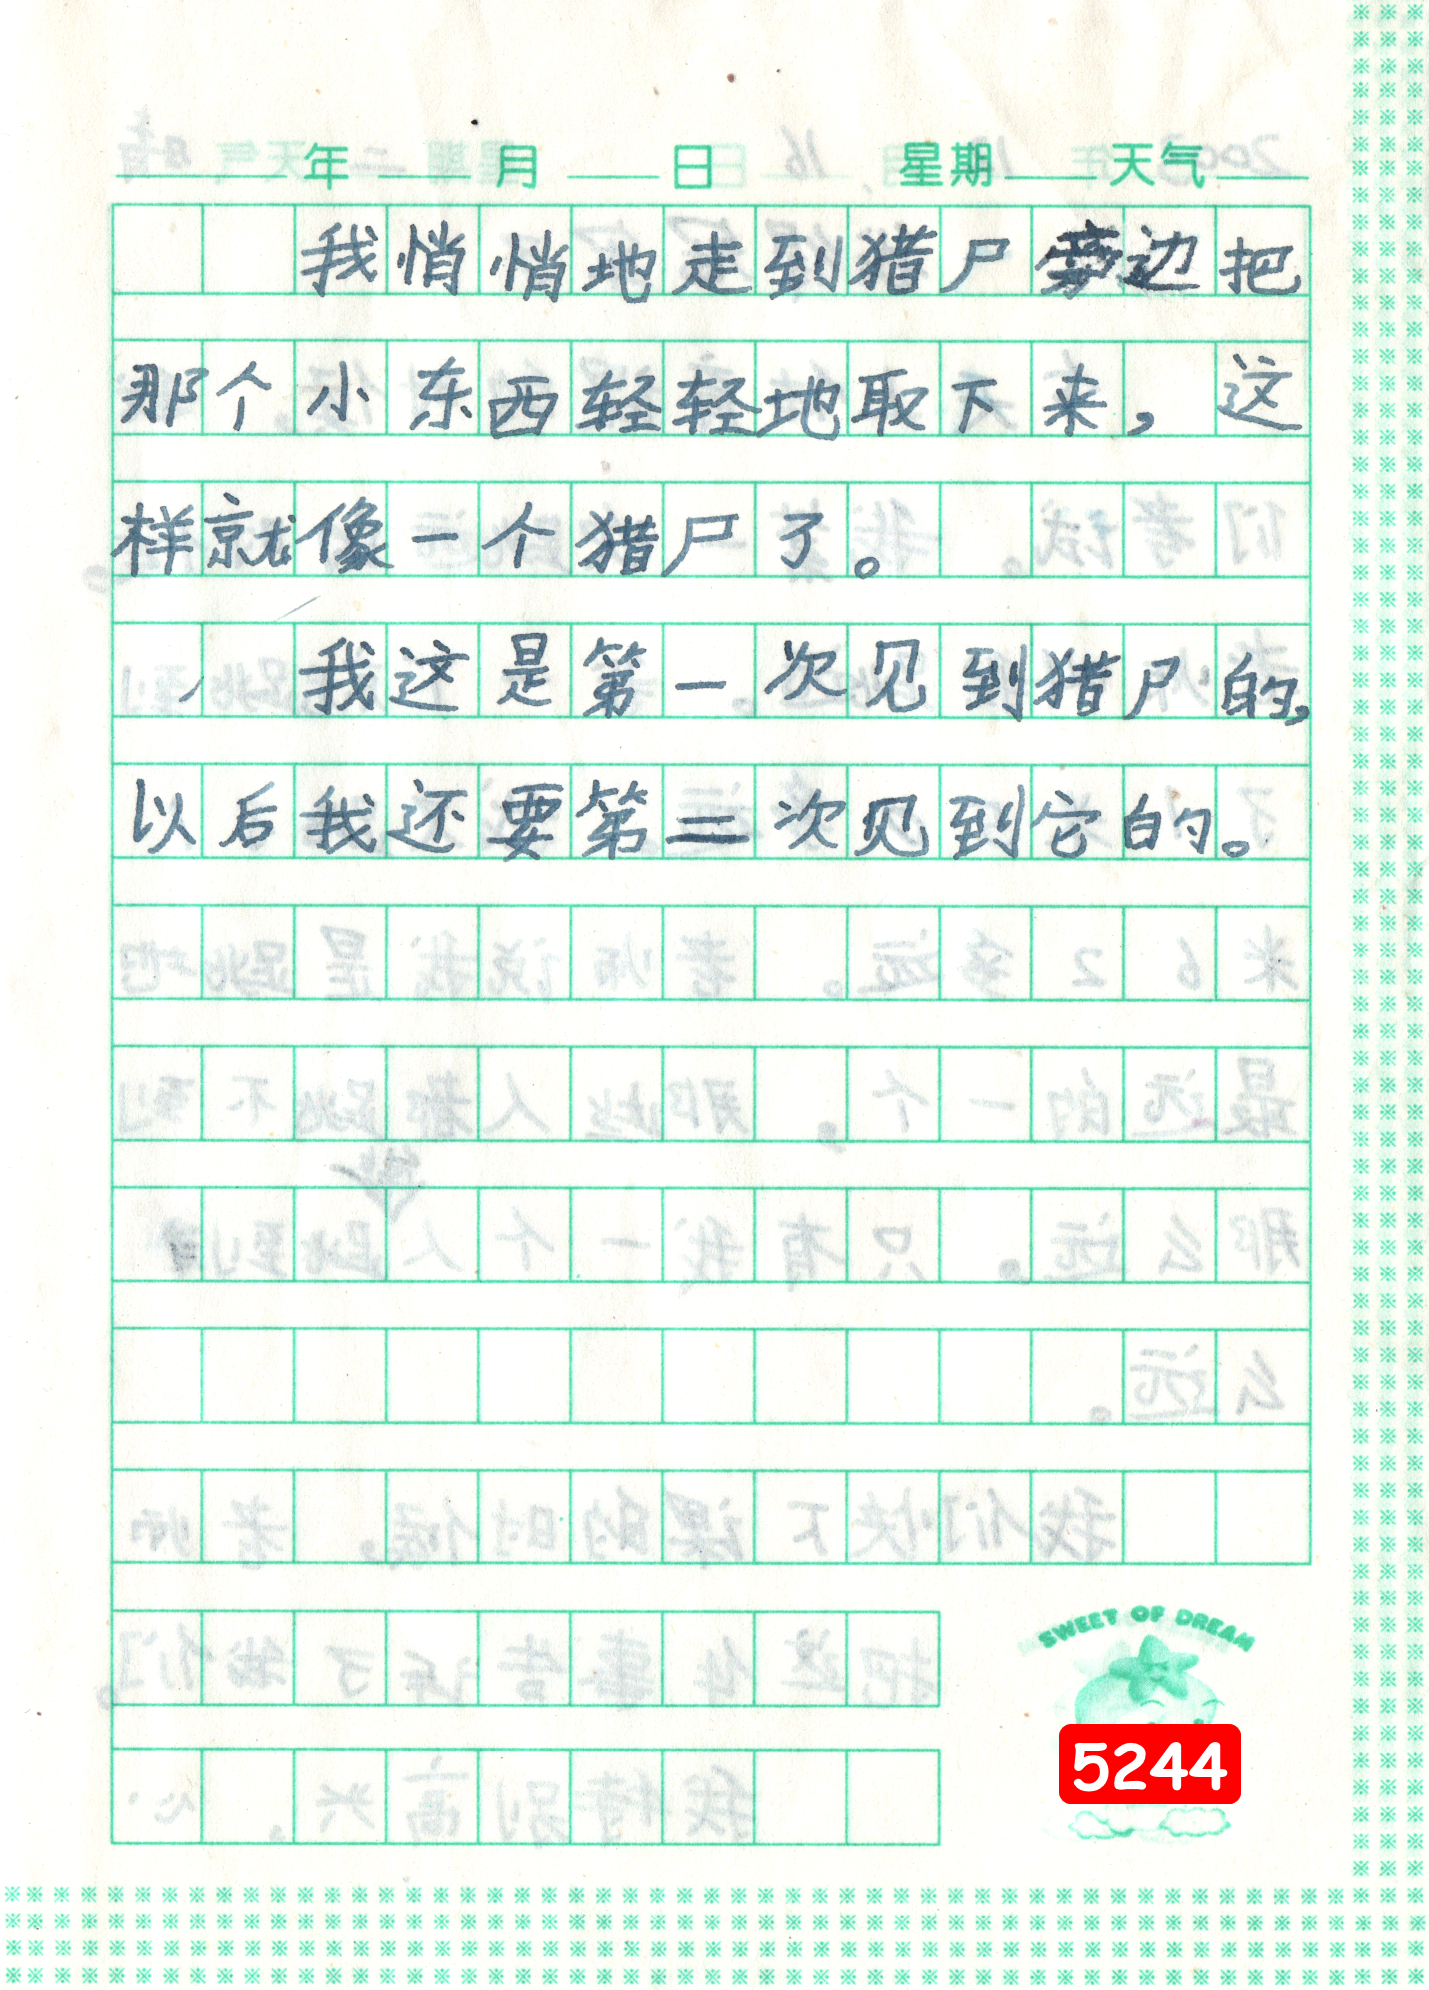 年 月 日 星期 天气
我悄悄地走到猎尸旁边把
那个小东西轻轻地取下来，这
样就像一个猎尸了。
我这是第一次见到猎尸的，
以后我还要第二次见到它的。
SWEET OF DREAM
5244